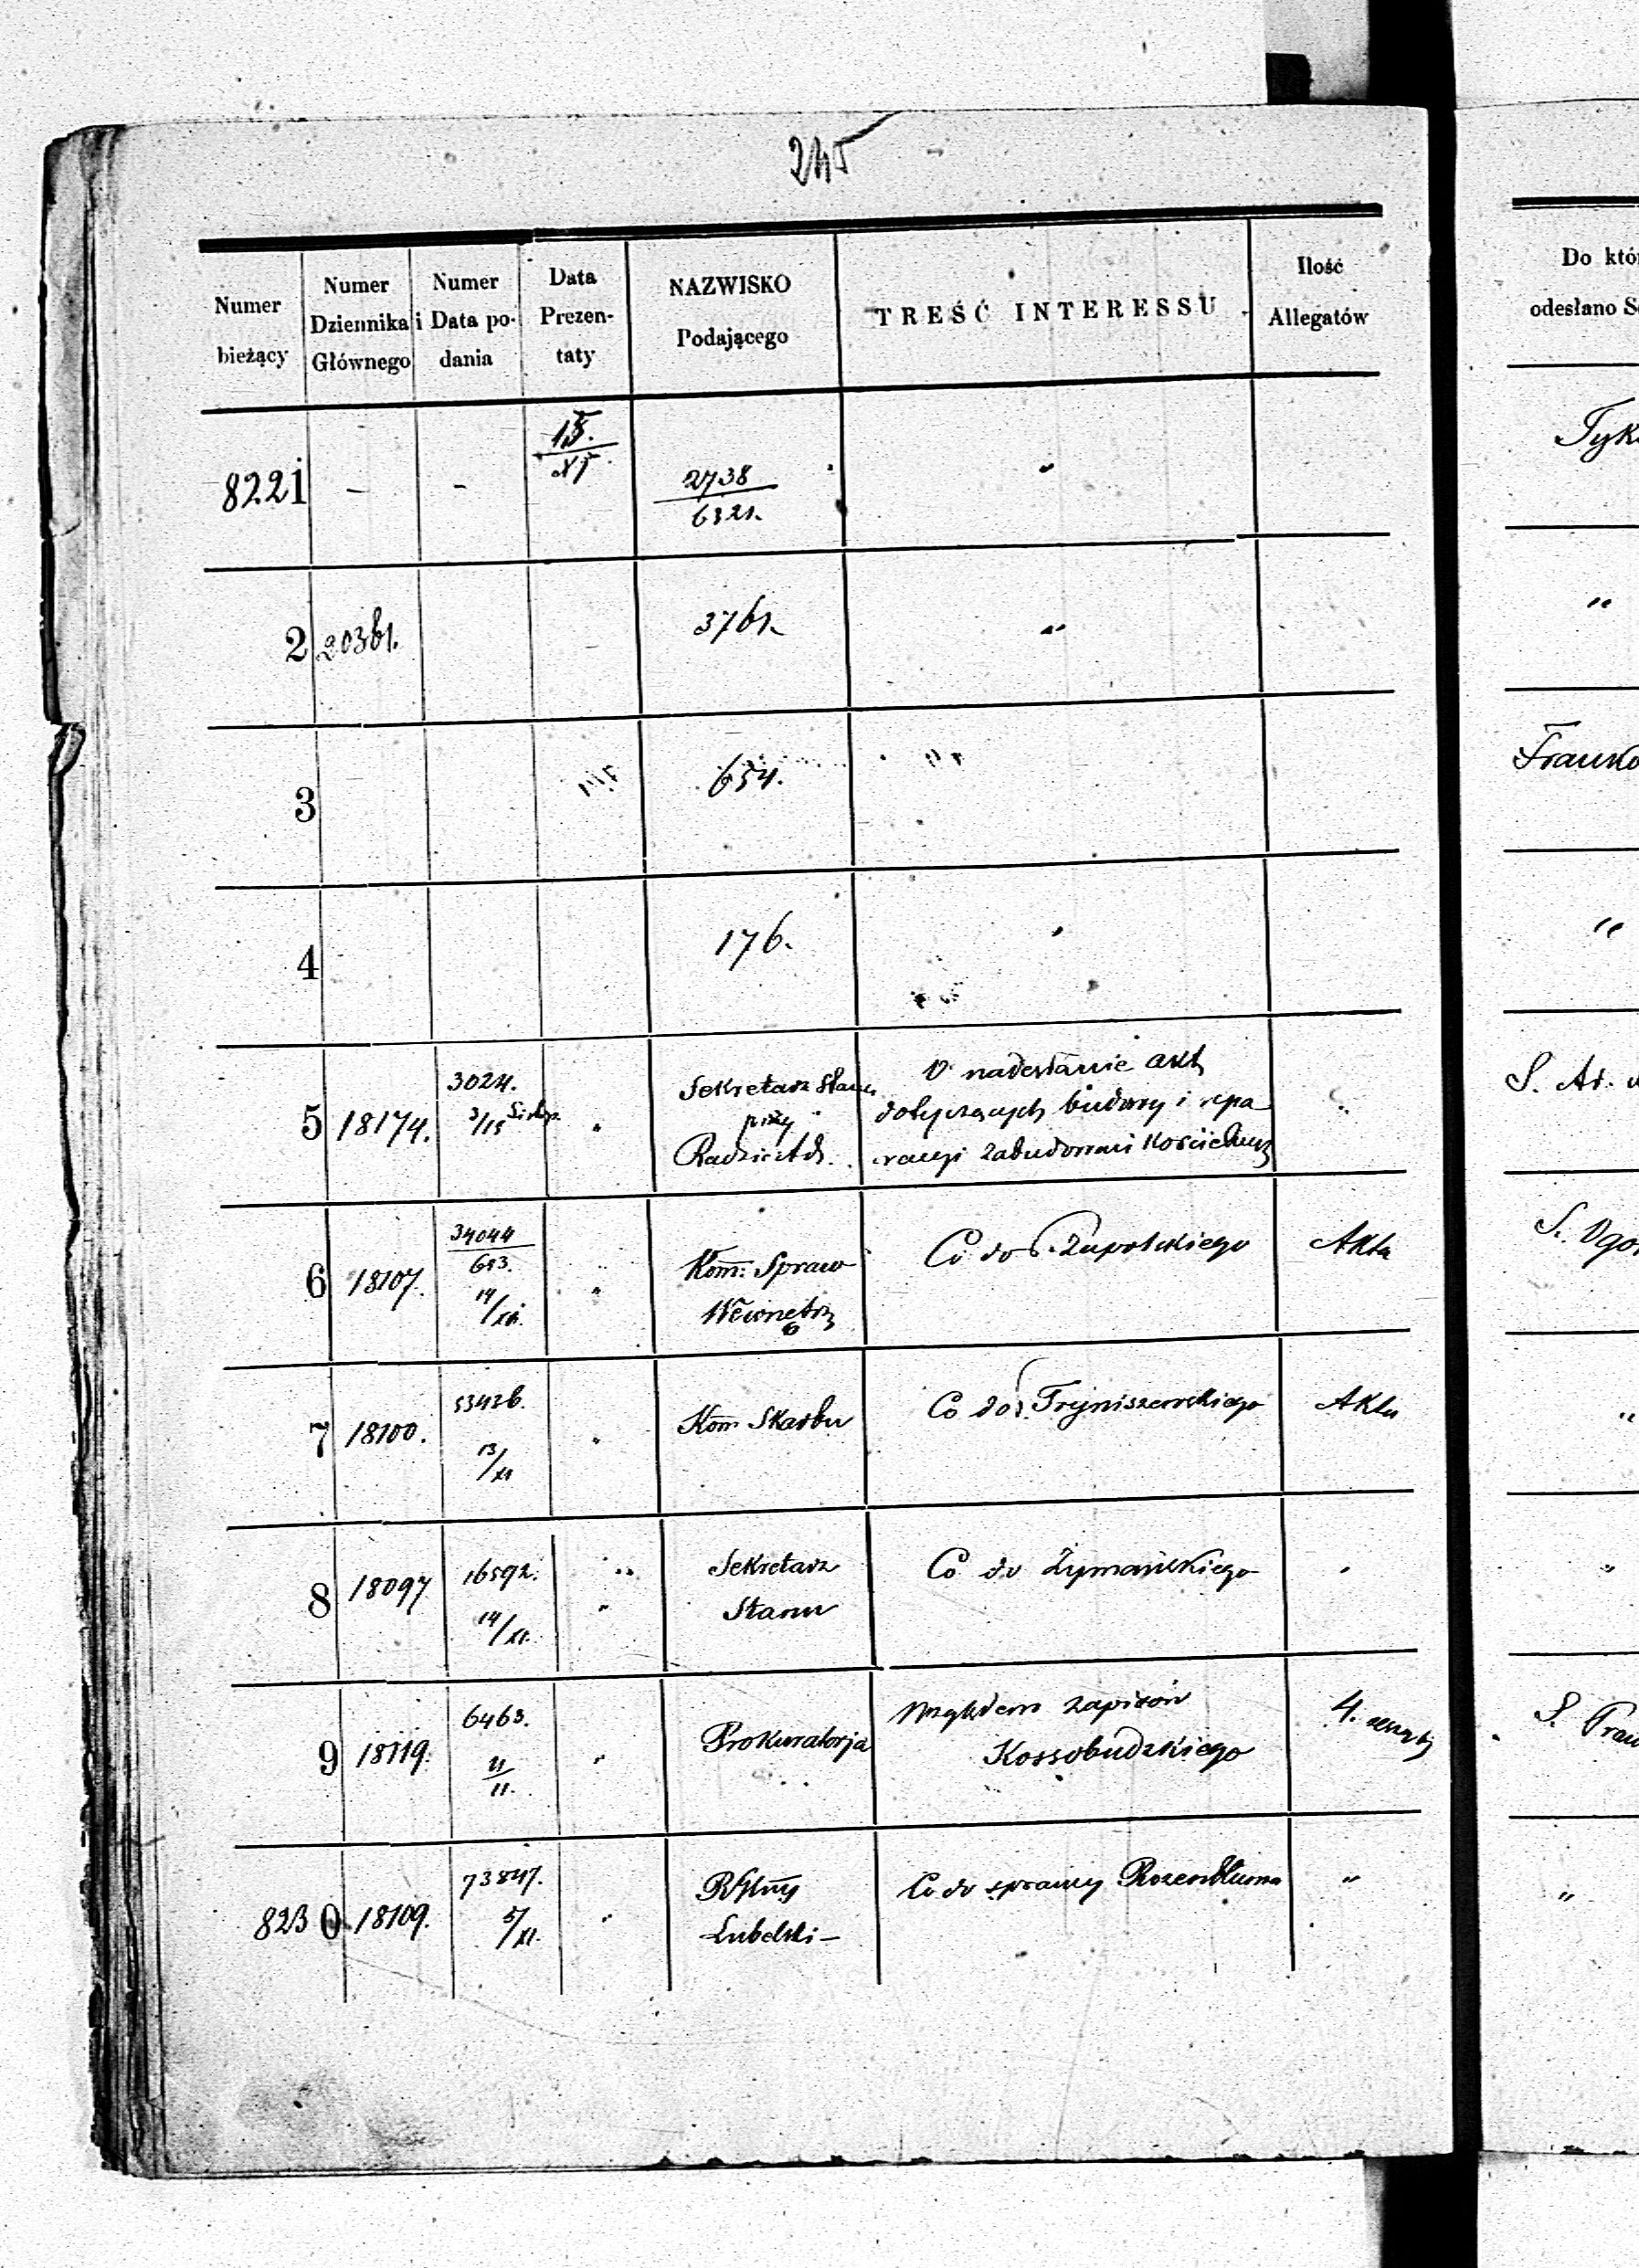 245
Numer bieżący
Numer Dziennika Głównego
Numer i Data podania
Data Prezentaty
NAZWISKO Podającego
TREŚĆ INTERESSU
Ilość Allegatów
Do któ
odesłano S
8221 - - 15./XI 2738/6321. " Tyk
2 20361. 3761. " "
3 654. Franko
4 176. " "
5 18174. 3024. 3/15 Listop. " Sekretarz Stanu
przy
Radzie Ad.
O nadesłanie akt
dotyczących budowy i repa
racyi zabudowań Kościelnych
S. Ad.
6 18107. 34044/613. 14/XI. " Kom: Spraw
Wewnętrz
Co do Zapolskiego
Akta
7 18100. 53426. 13/XI " Kom Skarbu
Co do Tryniszewskiego
Akta
"
8 18097 16592. 14/XI. " Sekretarz
Stanu
Co do Żymańskiego
"
"
9 18119. 6463. 11/11. " Prokuratorja
Względem zapisów
Kossobudzkiego
4.
S. Praw
8230 18109. 73847. 5/XI. "
Lubelski -
Co do sprawy Rozenbluma
"
"